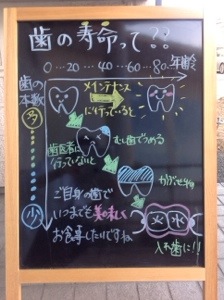 歯の寿命って??
0…20…40…60…80 年齢
歯の本数
多
メインテナンス
に行っていると
むし歯でつめる
歯医者に
行っていないと
かぶせ物
ご自身の歯で
いつまでも美味しく
お食事したいですね
少
入れ歯に!!